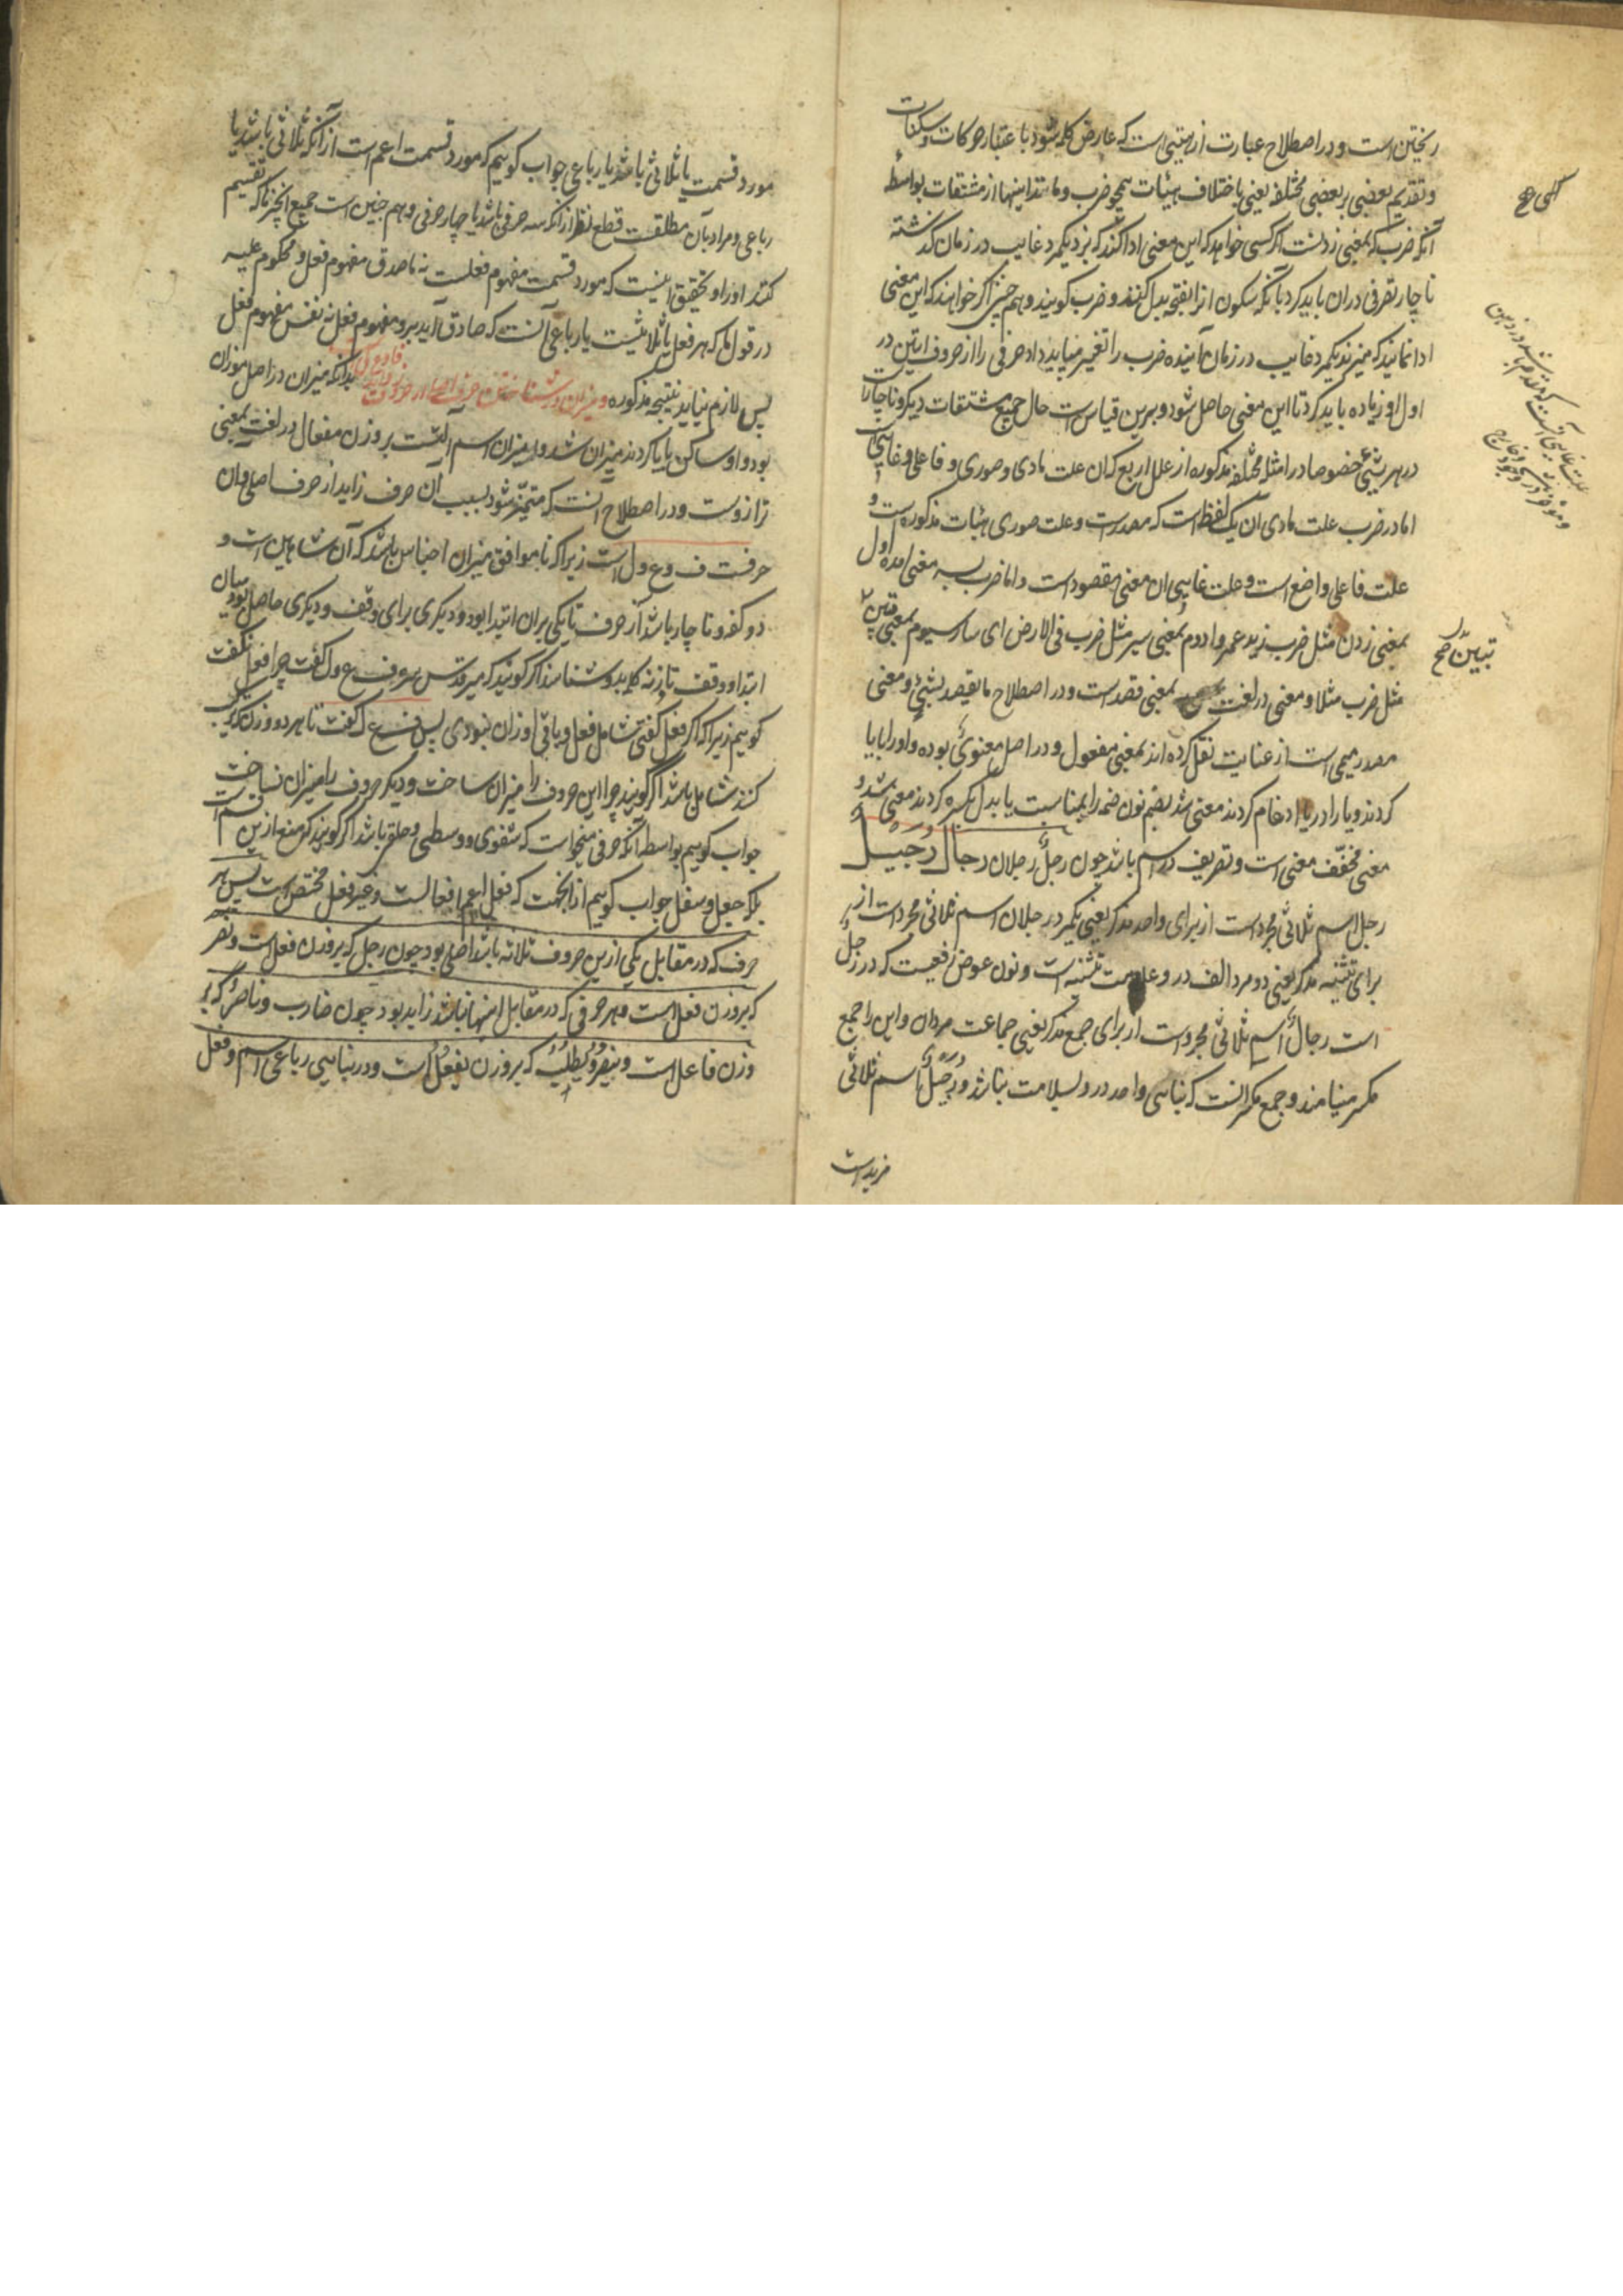 ریختن است و در اصطلاح عبارت از هیئتی است که عارض کلمه شود باعتبار حرکات و سکنات
و تقدیم بعضی بر بعضی مختلفه یعنی باختلاف هیئات همچو ضرب و مانند اینها از مشتقات بواسطه
آنکه ضرب که بمعنی زدنست اگر کسی خواهد که این معنی ادا کند که بزد یکمرد غایب در زمان گذشته
ناچار تصرفی در ان باید کرد بآنکه سکون را بفتحه بدل کنند و ضرب گویند و هم چنین اگر خواهند که این معنی
ادا نمایند که میزند یکمرد غایب در زمان آینده ضرب را تغییر میباید داد حرفی را از حروف اتین در
اول او زیاده باید کرد تا این معنی حاصل شود و برین قیاس است حال جمیع مشتقات دیگر و ناچار است
در هر شیئی خصوصا در امثله مختلفه مذکوره از علل اربع که ان علت مادی و صوری و فاعلی و غایی است
اما در ضرب علت مادی آن یک لفظ است که مصدر است و علت صوری هیئات مذکوره است و
علت فاعلی واضع است و علت غایی ان معنی مقصود است و اما ضرب بسه معنی آمده اول
بمعنی زدن مثل ضرب زید عمروا دوم بمعنی سیر مثل ضرب فی الارض ای سار سیوم بمعنی
مثل ضرب مثلا و معنی در لغت بمعنی قصد است و در اصطلاح ما یقصد بشیئ و معنی
مصدر میمی است از عنایت نقل کرده اند بمعنی مفعول و در اصل معنوی بوده واو را با یا
کردند و یا را در یا ادغام کردند معنی شد بضم نون ضمه را بمناسبت یا بدل بکسره کردند معنی شد و
معنی مخفف معنی است و تصریف در اسم باشد چون رجل رجلان رجال رجیل
رجل اسم ثلاثی مجرد است از برای واحد مذکر یعنی یکمرد رجلان اسم ثلاثی مجرد است از
برای تثنیه مذکر یعنی دو مرد الف در و علامت تثنیه است و نون عوض رفعیست که در رجل
است رجال اسم ثلاثی مجرد است از برای جمع مذکر یعنی جماعت مردان و این را جمع
مکسر مینامند و جمع مکسر انست که بنای واحد در و بسلامت نباشد و رجیل اسم ثلاثی
مزید است
تبیین صح
مورد قسمت یا ثلاثی باشد یا رباعی جواب گوییم که مورد قسمت اعم است از آنکه ثلاثی باشد یا
رباعی و مراد بآن مطلقست قطع نظر از آنکه سه حرفی باشد یا چهار حرفی و هم چنین است جمیع انچیزها که تقسیم
کنند او را و تحقیق اینست که مورد قسمت مفهوم فعلست نه ماصدق مفهوم فعل و محکوم علیه
در قول ما که هر فعل یا ثلاثیست یا رباعی آنست که صادق آید برو مفهوم فعل نه نفس مفهوم فعل
پس لازم نیاید نتیجه مذکوره و میزان در شناختن حرف اصلی از حروف زاید فا و عین بدانکه میزان در اصل موزان
بود واو ساکن را یا کردند میزان شد و میزان اسم آلتست بر وزن مفعال در لغت بمعنی
ترازوست و در اصطلاح آنست که متمیز شود بسبب آن حرف زاید از حرف اصلی و ان
حرفست ف و ع و ل است زیرا که تا موافق میزان اجناس باشد که آن شاهین است و
دو کفه و ناچار باشد از حرف تا یکی بران ابتدا بود و دیگری برای وقف و دیگری حاصل بود میان
ابتدا و وقف تا وزن کلمه بدو شناسند اگر گویند که میر قدس سره ف ع و ل گفت چرا فعل نگفت
گوییم زیرا که اگر فعل گفتی شامل فعل و باقی اوزان نبودی پس ف ع ل گفت تا بهر دو وزن که ترکیب
کنند شامل باشد اگر گویند چرا این حروف را میزان ساخت و دیگر حروف را میزان نساخت
جواب گوییم بواسطه آنکه حرفی میخواست که شفوی و وسطی و حلقی باشد اگر گویند که منهم ازین قسم است
بلکه جعل و سفل جواب گوییم از انجهت که فعل اعم افعالست و غیر فعل مختص است پس هر
حرف که در مقابل یکی ازین حروف ثلاثه باشد اصلی بود چون رجل که بر وزن فعل است و نصر
که بر وزن فعل است و هر حرفی که در مقابل اینها نباشد زاید بود چون ضارب و ناصر که بر
وزن فاعل است و ینصر و یطلب که بر وزن یفعل است و در بنای رباعی اسم و فعل